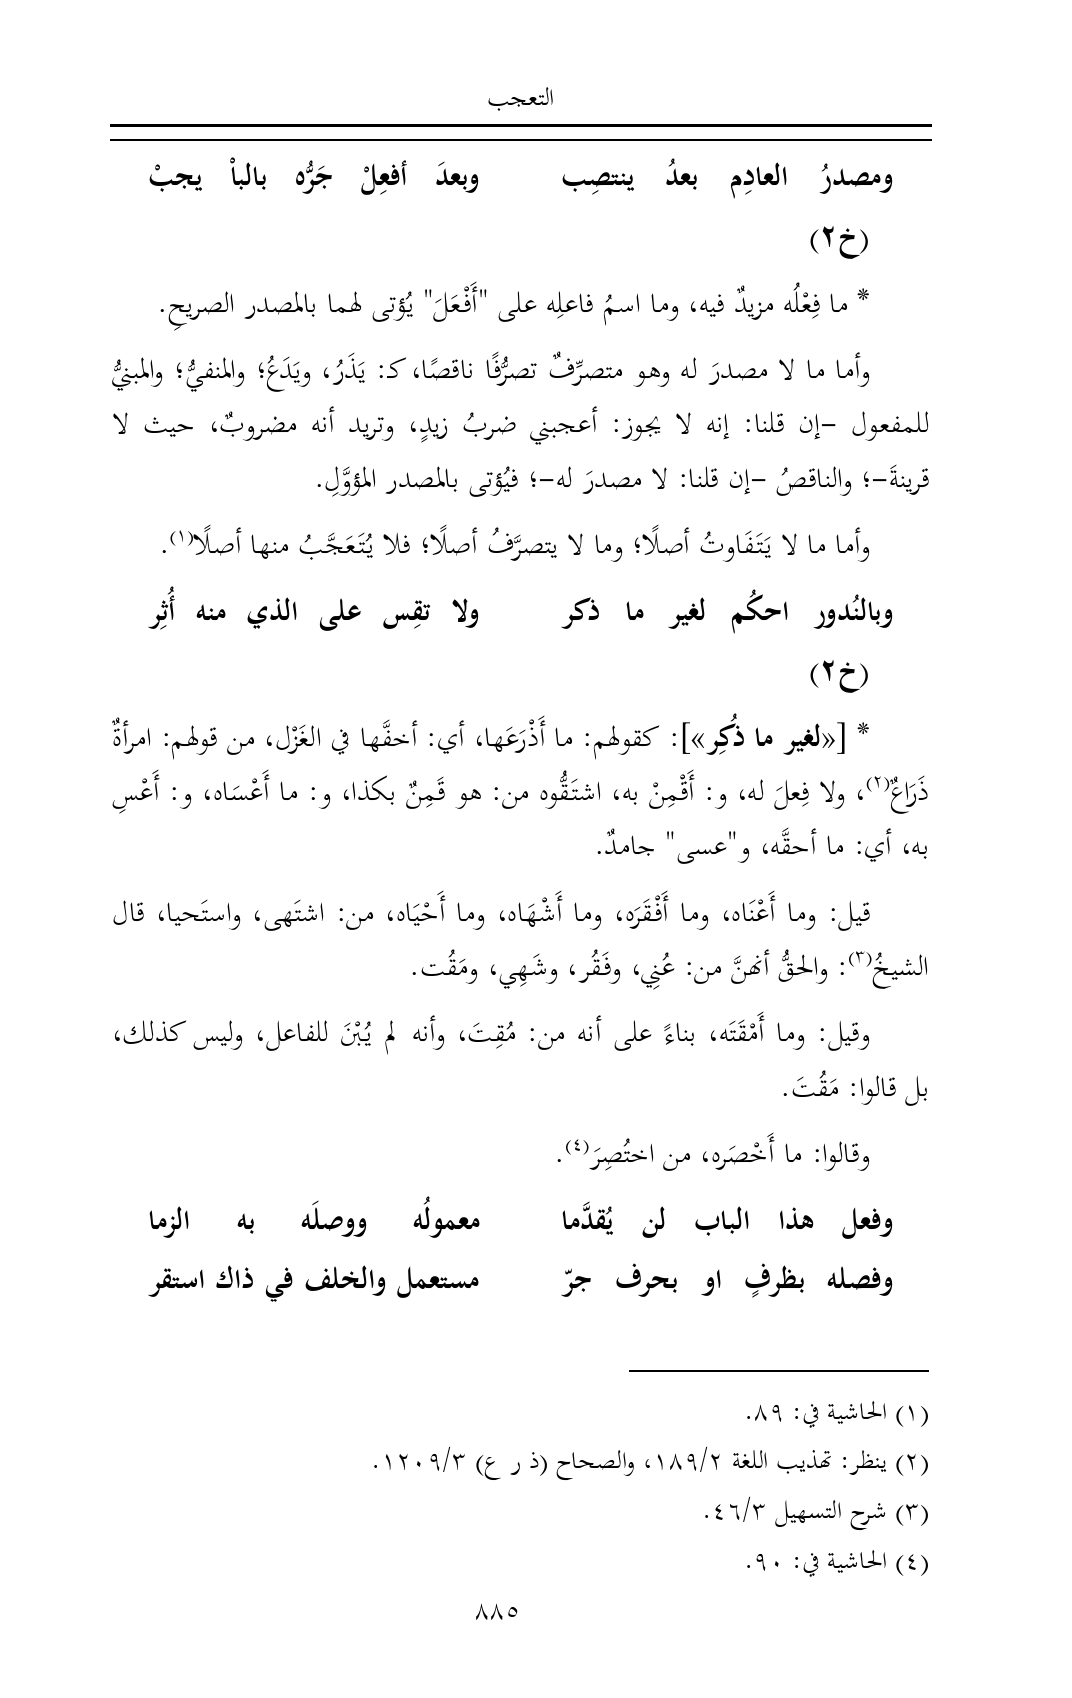 التعجب
ومصدرُ العادِم بعدُ ينتصِب وبعدَ أفعِلْ جَرُّه بالباْ يجبْ
(خ٢)
* ما فِعْلُه مزيدٌ فيه، وما اسمُ فاعلِه على "أَفْعَلَ" يُؤتى لهما بالمصدر الصريحِ.
وأما ما لا مصدرَ له وهو متصرِّفٌ تصرُّفًا ناقصًا، كـ: يَذَرُ، ويَدَعُ؛ والمنفيُّ؛ والمبنيُّ
للمفعول –إن قلنا: إنه لا يجوز: أعجبني ضربُ زيدٍ، وتريد أنه مضروبٌ، حيث لا
قرينةَ–؛ والناقصُ –إن قلنا: لا مصدرَ له–؛ فيُؤتى بالمصدر المؤوَّلِ.
وأما ما لا يَتَفَاوتُ أصلًا؛ وما لا يتصرَّفُ أصلًا؛ فلا يُتَعَجَّبُ منها أصلًا(١).
وبالنُدور احكُم لغير ما ذكر ولا تقِس على الذي منه أُثِر
(خ٢)
* [«لغير ما ذُكِر»]: كقولهم: ما أَذْرَعَها، أي: أخفَّها في الغَزْل، من قولهم: امرأةٌ
ذَرَاعٌ(٢)، ولا فِعلَ له، و: أَقْمِنْ به، اشتَقُّوه من: هو قَمِنٌ بكذا، و: ما أَعْسَاه، و: أَعْسِ
به، أي: ما أحقَّه، و"عسى" جامدٌ.
قيل: وما أَعْنَاه، وما أَفْقَرَه، وما أَشْهَاه، وما أَحْيَاه، من: اشتَهى، واستَحيا، قال
الشيخُ(٣): والحقُّ أنهنَّ من: عُنِي، وفَقُر، وشَهِي، ومَقُت.
وقيل: وما أَمْقَتَه، بناءً على أنه من: مُقِتَ، وأنه لم يُبْنَ للفاعل، وليس كذلك،
بل قالوا: مَقُتَ.
وقالوا: ما أَخْصَره، من اختُصِرَ(٤).
وفعل هذا الباب لن يُقدَّما معمولُه ووصلَه به الزما
وفصله بظرفٍ او بحرف جرّ مستعمل والخلف في ذاك استقر
(١) الحاشية في: ٨٩.
(٢) ينظر: تهذيب اللغة ١٨٩/٢، والصحاح (ذ ر ع) ١٢٠٩/٣.
(٣) شرح التسهيل ٤٦/٣.
(٤) الحاشية في: ٩٠.
٨٨٥